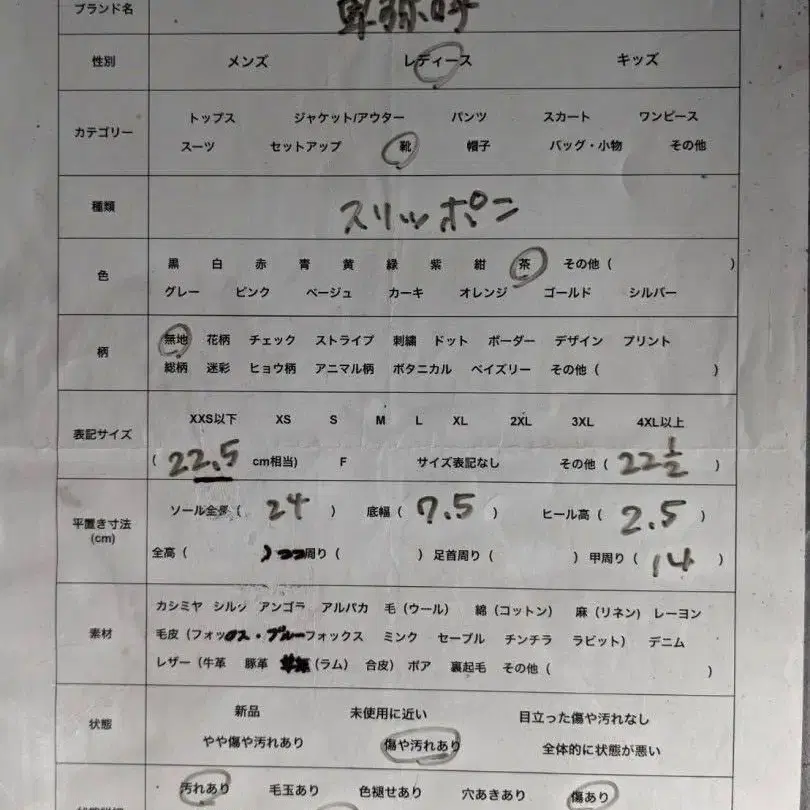 ブランド名 卑弥呼
性別 メンズ レディース キッズ
トップス ジャケット/アウター パンツ スカート ワンピース
カテゴリー
スーツ セットアップ 靴 帽子 バッグ・小物 その他
種類 スリッポン
黒 白 赤 青 黄 緑 紫 紺 茶 その他 ( )
色
グレー ピンク ベージュ カーキ オレンジ ゴールド シルバー
無地 花柄 チェック ストライプ 刺繍 ドット ボーダー デザイン プリント
柄
総柄 迷彩 ヒョウ柄 アニマル柄 ボタニカル ペイズリー その他 ( )
XXS以下 XS S M L XL 2XL 3XL 4XL以上
表記サイズ
( 22.5 cm相当) F サイズ表記なし その他 ( 22 1/2 )
ソール全長 ( 24 ) 底幅 ( 7.5 ) ヒール高 ( 2.5 )
平置き寸法
(cm)
全高 ( ) 周り ( ) 足首周り ( ) 甲周り ( 14 )
カシミヤ シルク アンゴラ アルパカ 毛 (ウール) 綿 (コットン) 麻 (リネン) レーヨン
素材
毛皮 (フォックス・ブルーフォックス ミンク セーブル チンチラ ラビット) デニム
レザー (牛革 豚革 (ラム) 合皮) ボア 裏起毛 その他 ( )
新品 未使用に近い 目立った傷や汚れなし
状態
やや傷や汚れあり 傷や汚れあり 全体的に状態が悪い
汚れあり 毛玉あり 色褪せあり 穴あきあり 傷あり